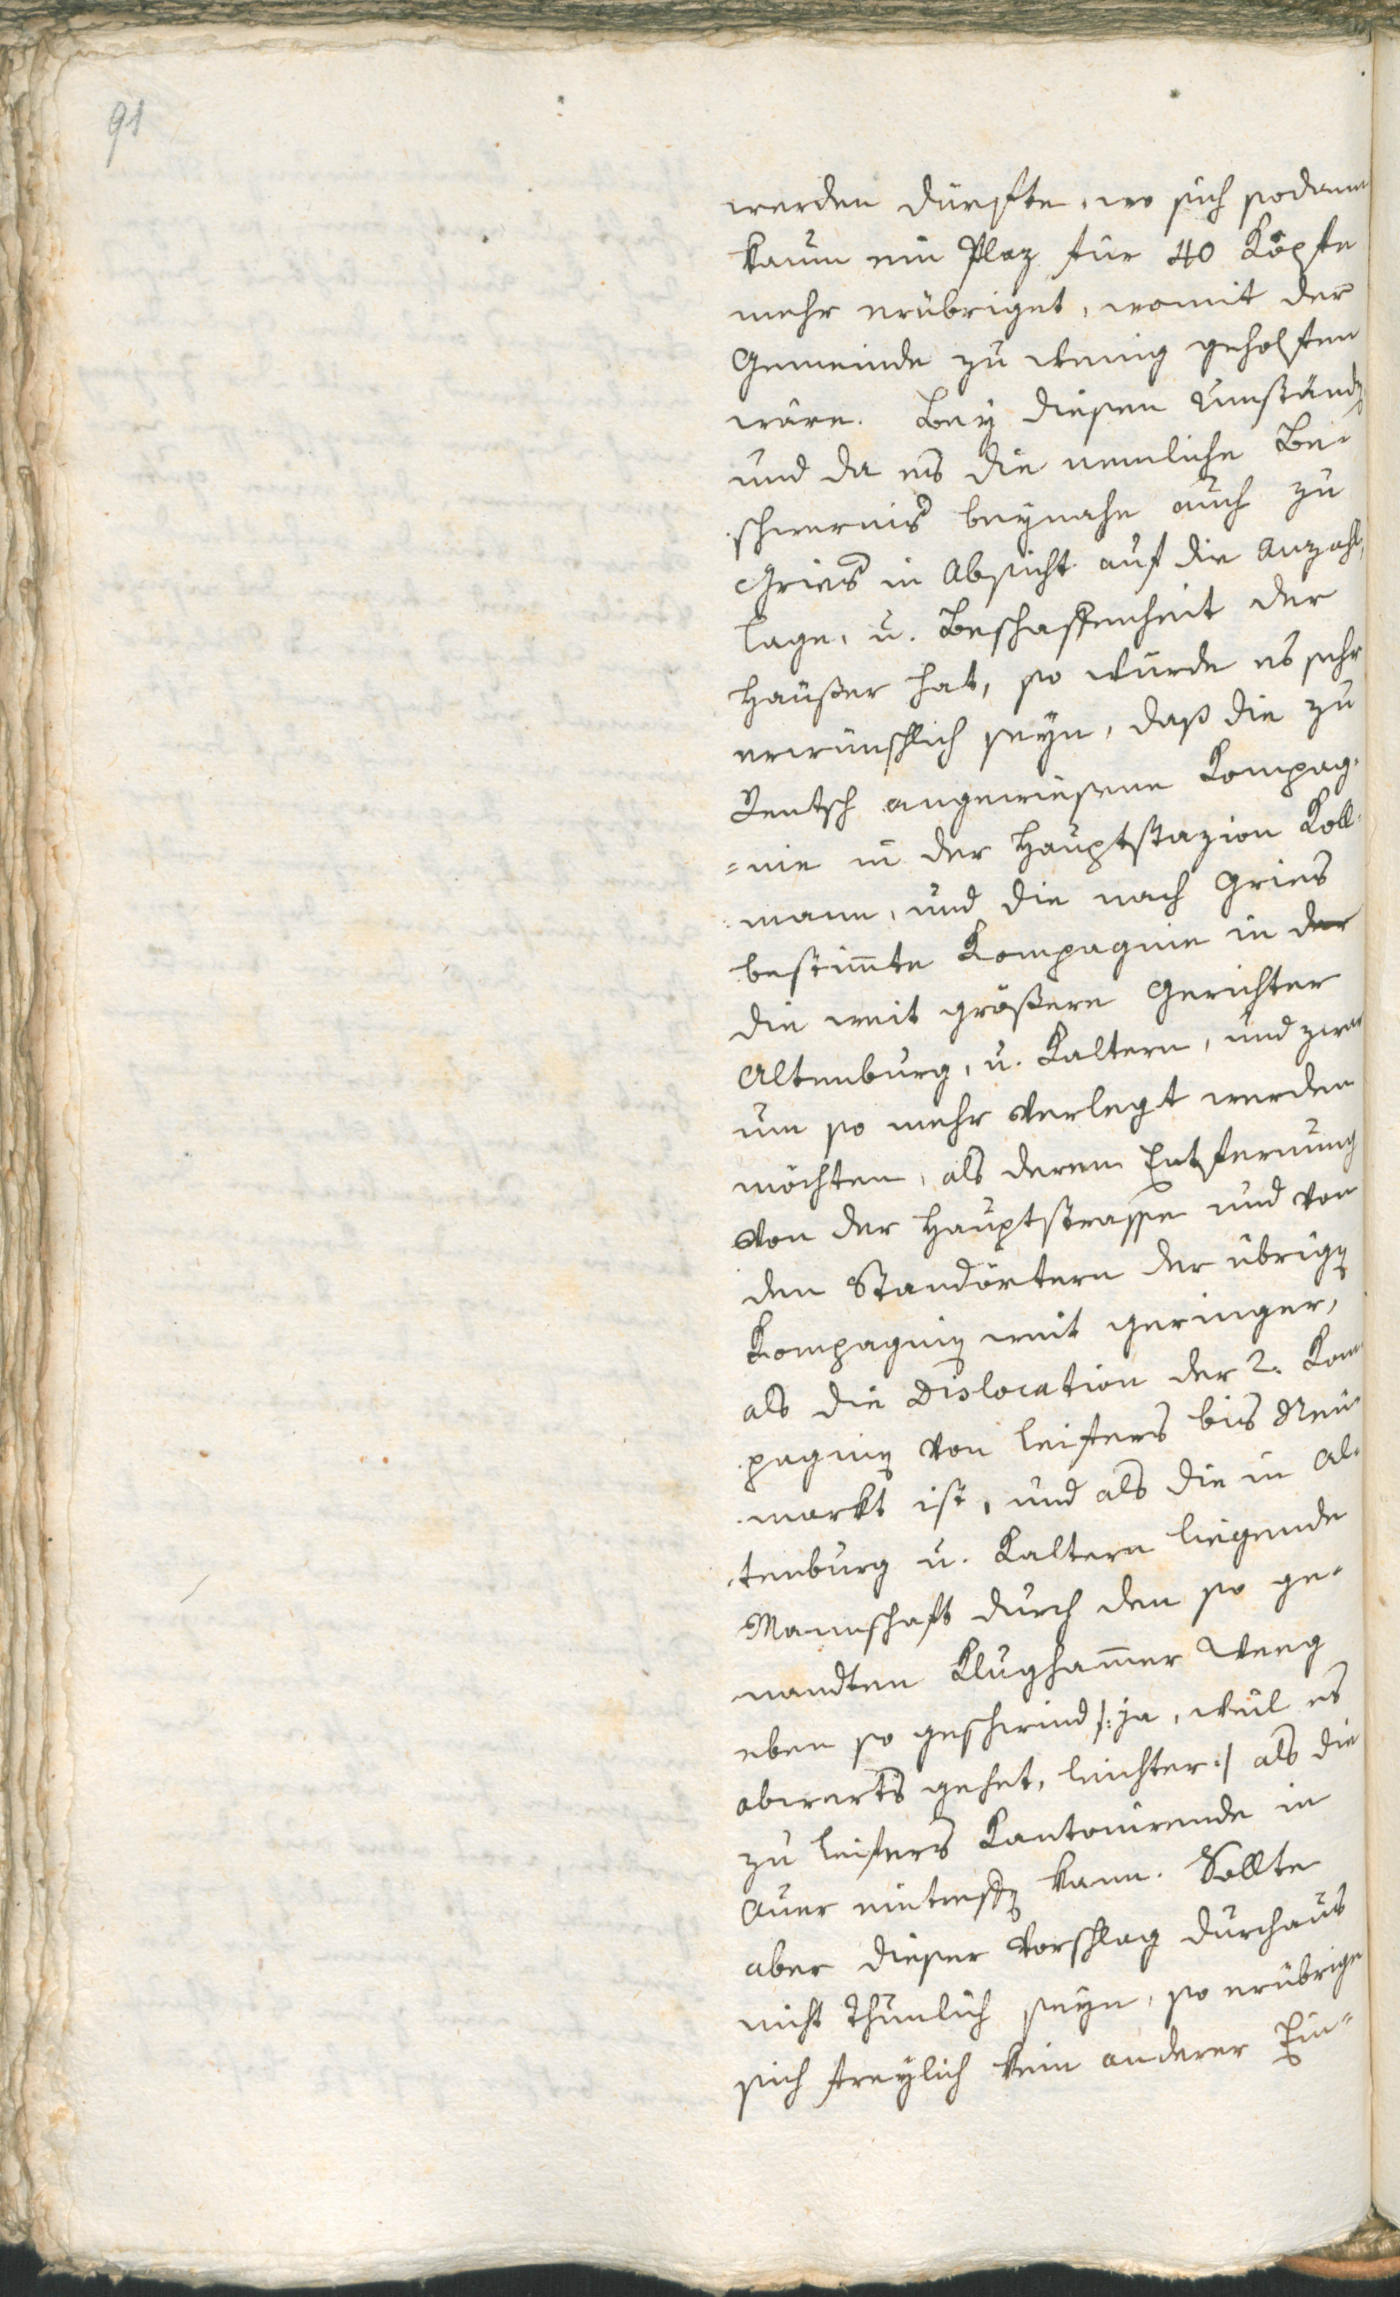 91
werden dürfte, wo sich sodann
kaum ein Plaz für 40 Köpfe
mehr erübriget, womit der
Gemeinde zu wenig geholfen
wäre. Bey diesen Umständen
und da es die nemliche Be-
schwerniß beynahe auch zu
Gries in Absicht auf die Anzahl,
Lage, u. Beschaffenheit der
Häußer hat, so wurde es sehr
erwünschlich seyn, daß die zu
Rentsch angewiesene Kompag-
=nie in der Hauptstazion Koll-
mann, und die nach Gries
bestim̄te Kompagnie in der
die weit größere Gerichter
Altenburg, u. Kaltern, und zwar
um so mehr verlegt werden
möchten, als deren Entfernung
von der Hauptstrasse und von
den Standörtern der übrigen
Kompagnien weit geringer,
als die Dislocation der 2. Kom-
pagnien von Leifers bis Neu-
markt ist, und als die in Al-
tenburg u. Kaltern liegende
Mannschaft durch den so ge-
nandten Klugham̄er Weeg
eben so geschwind /: ja, weil es
abwerts gehet, leichter :/ als die
zu Leifers Kantonirende in
Auer eintreffen kann. Sollte
aber dieser Vorschlag durchaus
nicht thunlich seyn, so erübrige
sich freylich kein anderer Ein-